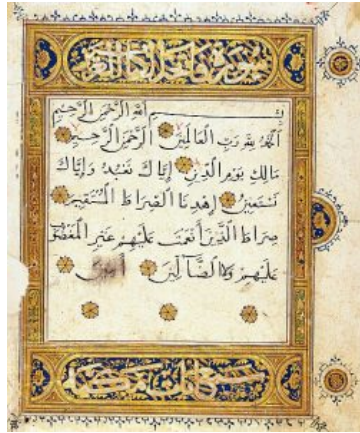 سورة فاتحة الكتاب
بِسْمِ اللَّهِ الرَّحْمَنِ الرَّحِيمِ
اَلْحَمْدُ لِلَّهِ رَبِّ الْعَالَمِينَ الرَّحْمَنِ الرَّحِيمِ
مَالِكِ يَوْمِ الدِّينِ إِيَّاكَ نَعْبُدُ وَإِيَّاكَ
نَسْتَعِينُ إِهْدِنَا الصِّرَاطَ الْمُسْتَقِيمَ
صِرَاطَ الَّذِينَ أَنْعَمْتَ عَلَيْهِمْ غَيْرِ الْمَغْضُوبِ
عَلَيْهِمْ وَلَا الضَّآلِّينَ أمين